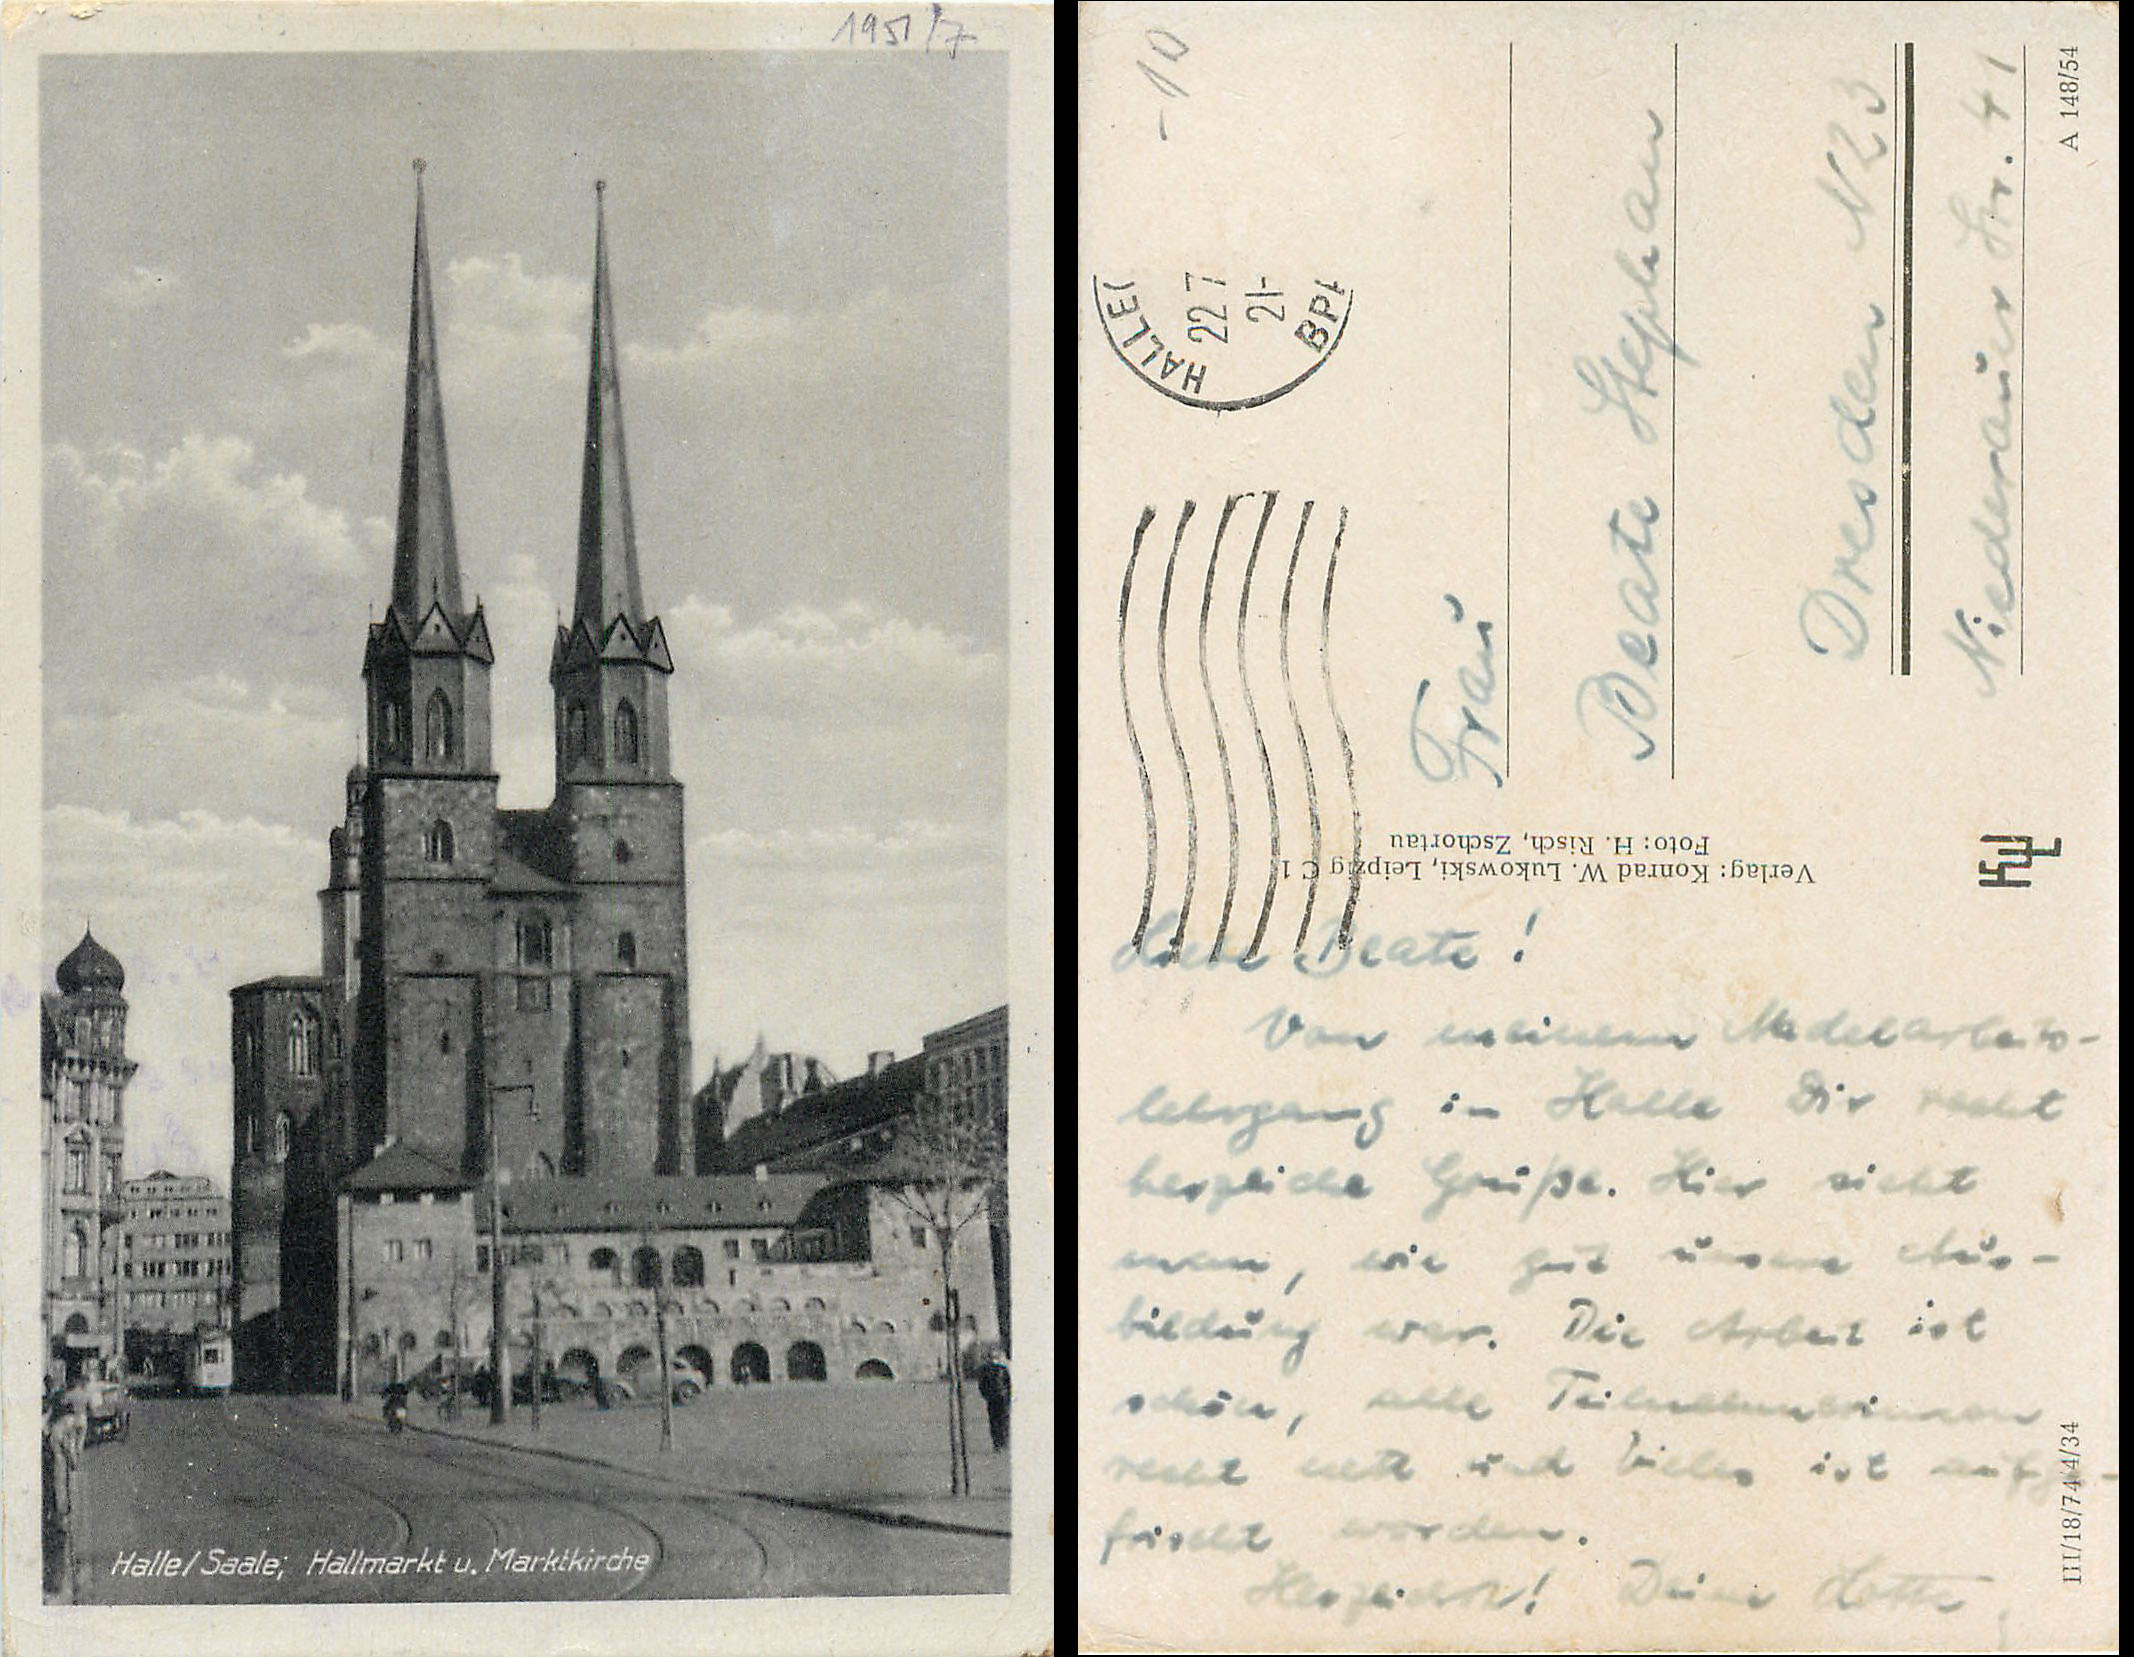 1951/7
Halle/Saale; Hallmarkt u. Marktkirche
-10
HALLE(
22 7
21-
BPA
Frau
Beate Stephan
Dresden N23
Niederauer Str. 41
A 148/54
Verlag: Konrad W. Lukowski, Leipzig C 1
Foto: H. Risch, Zschortau
Liebe Beate!
Von meinem
lehrgang in Halle Dir recht
herzliche Grüße. Hier sieht
man, wie gut unsere Aus-
bildung war. Die Arbeit ist
schön, alle Teilnehmerinnen
recht nett und vieles ist aufge-
frischt worden.
Herzlichst! Deine Lotte
III/18/74 4/34